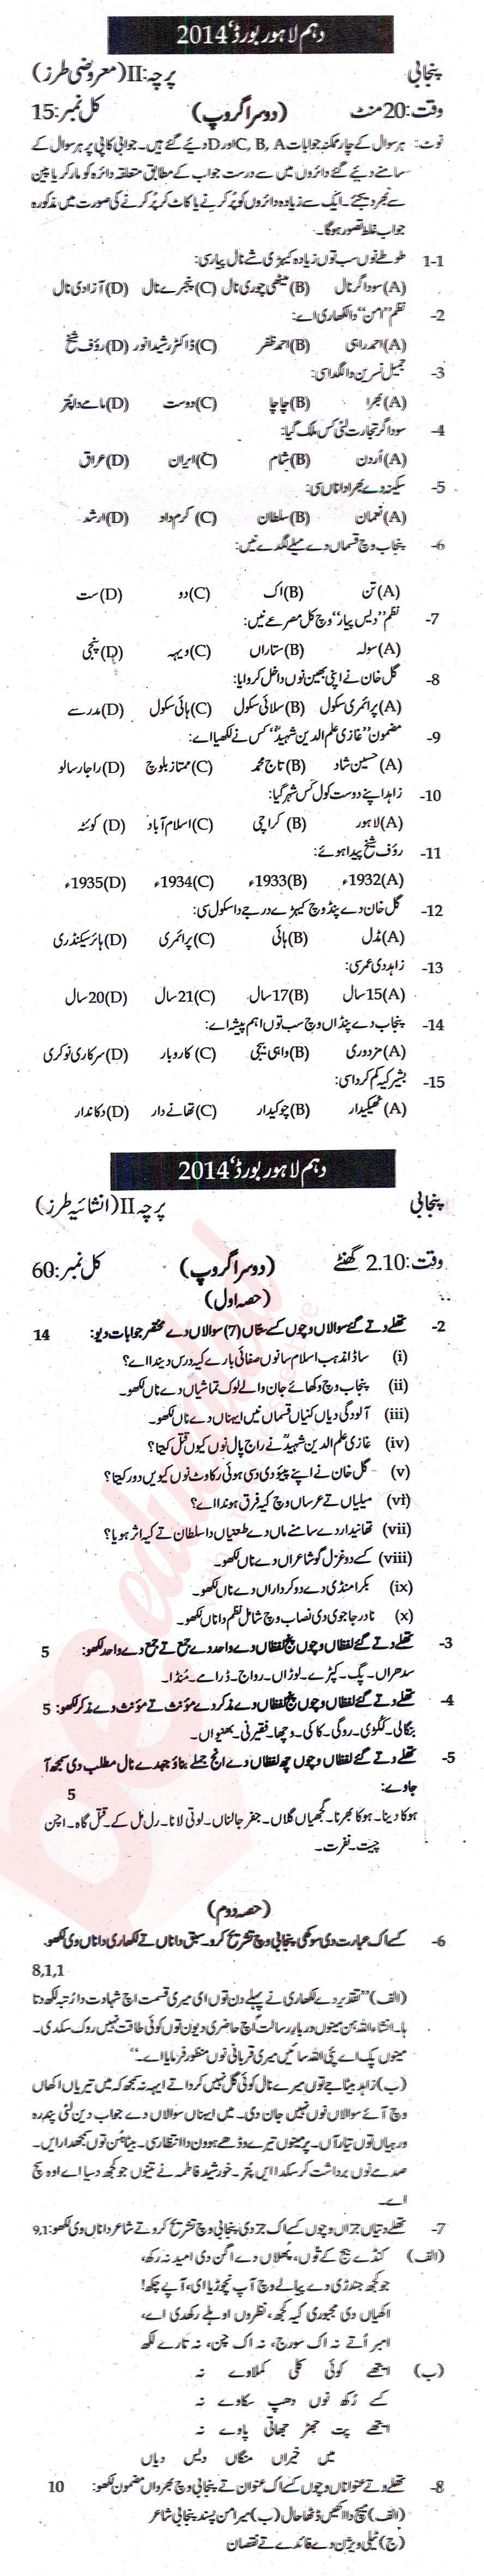 دہم لاہور بورڈ، 2014
پنجابی پرچہ:II(معروضی طرز)
وقت:20منٹ (دوسرا گروپ) کل نمبر:15
نوٹ: ہر سوال کے چار ممکنہ جوابات C, B, A اور D دیئے گئے ہیں۔ جوابی کاپی پر ہر سوال کے
سامنے دیئے گئے دائروں میں سے درست جواب کے مطابق متعلقہ دائرہ کو مارکر یا پین
سے بھر دیجئے۔ ایک سے زیادہ دائروں کو پُر کرنے یا کاٹ کر پُر کرنے کی صورت میں مذکورہ
جواب غلط تصور ہوگا۔
1-1 طوطے نوں سب توں زیادہ کیہڑی شے نال پیار سی:
(A)سوداگر نال (B)میٹھی چوری نال (C)پنجرے نال (D)آزادی نال
-2 نظم "امن" دا لکھاری اے:
(A)احمد راہی (B)احمد ظفر (C)ڈاکٹر رشید انور (D)رؤف شیخ
-3 جمیل نسرین دا لگدا سی:
(A)بھرا (B)چاچا (C)دوست (D)مامے دا پتر
-4 سوداگر تجارت لئی کس ملک گیا:
(A)اُردن (B)شام (C)ایران (D)عراق
-5 سکینہ دے بھرا دا ناں سی:
(A)نعمان (B)سلطان (C)کرم داد (D)ارشد
-6 پنجاب وچ قسماں دے میلے لگدے نیں:
(A)تن (B)اک (C)دو (D)ست
-7 نظم "دیس پیار" وچ کل مصرعے نیں:
(A)سولہ (B)ستاراں (C)ویہہ (D)پنجی
-8 گل خان نے اپنی بھین نوں داخل کروایا:
(A)پرائمری سکول (B)سلائی سکول (C)ہائی سکول (D)مدرسے
-9 مضمون "غازی علم الدین شہیدؒ" کس نے لکھیا اے:
(A)حسین شاد (B)تاج محمد (C)ممتاز بلوچ (D)راجا رسالو
-10 زاہد اپنے دوست کول کس شہر گیا:
(A)لاہور (B)کراچی (C)اسلام آباد (D)کوئٹہ
-11 رؤف شیخ پیدا ہوئے:
(A)1932ء (B)1933ء (C)1934ء (D)1935ء
-12 گل خان دے پنڈ وچ کیہڑے درجے دا سکول سی:
(A)مڈل (B)ہائی (C)پرائمری (D)ہائر سیکنڈری
-13 زاہد دی عمر سی:
(A)15سال (B)17سال (C)21سال (D)20سال
-14 پنجاب دے پنڈاں وچ سب توں اہم پیشہ اے:
(A)مزدوری (B)واہی بیجی (C)کاروبار (D)سرکاری نوکری
-15 بشیر کیہ کم کردا سی:
(A)ٹھیکیدار (B)چوکیدار (C)تھانے دار (D)دکاندار
دہم لاہور بورڈ، 2014
پنجابی پرچہII(انشائیہ طرز)
وقت:2.10 گھنٹے (دوسرا گروپ) کل نمبر:60
(حصہ اول)
-2 تھلے دتے گئے سوالاں وچوں کسے ستاں (7) سوالاں دے مختصر جوابات دیو: 14
(i) ساڈا مذہب اسلام سانوں صفائی بارے کیہ درس دیندا اے؟
(ii) پنجاب وچ وکھائے جان والے لوک تماشیاں دے ناں لکھو۔
(iii) آلودگی دیاں کنیاں قسماں نیں ایہناں دے ناں لکھو۔
(iv) غازی علم الدین شہیدؒ نے راج پال نوں کیوں قتل کیتا؟
(v) گل خان نے اپنے پیئو دی دسی ہوئی رکاوٹ نوں کیویں دور کیتا؟
(vi) میلیاں تے عرساں وچ کیہ فرق ہوندا اے؟
(vii) تھانیدار دے سامنے ماں دے طعنیاں دا سلطان تے کیہ اثر ہویا؟
(viii) کسے دو غزل گو شاعراں دے ناں لکھو۔
(ix) بکرا منڈی دے دو کرداراں دے ناں لکھو۔
(x) نادر جاجوی دی نصاب وچ شامل نظم دا ناں لکھو۔
-3 تھلے دتے گئے لفظاں وچوں پنج لفظاں دے واحد دے جمع تے جمع دے واحد لکھو: 5
سدھراں۔ پگ۔ کپڑے۔ لوڑاں۔ رواج۔ ڈرامے۔ مُنڈا۔
-4 تھلے دتے گئے لفظاں وچوں پنج لفظاں دے مذکر دے مؤنث تے مؤنث دے مذکر لکھو: 5
بنگالی۔ ککڑی۔ روگی۔ کاکی۔ وچھا۔ فقیرنی۔ بھنیواں۔
-5 تھلے دتے گئے لفظاں وچوں چھ لفظاں دے انج جملے بناؤ جہدے نال مطلب دی سمجھ آ
جاوے: 5
ہوکا دینا۔ ہوکا بھرنا۔ گجھیاں گلاں۔ جفر جالناں۔ لوتی لانا۔ رل مل کے۔ قتل گاہ۔ اچن
چیت۔ نفرت۔
(حصہ دوم)
-6 کسے اک عبارت دی سوکھی پنجابی وچ تشریح کرو۔ سبق دا ناں تے لکھاری دا ناں وی لکھو۔
8,1,1
(الف) "تقدیر دے لکھاری نے پہلے دن توں ای میری قسمت اچ شہادت دا رتبہ لکھ دتا
ہا۔ انشاء اللہ ہن مینوں دربار رسالت اچ حاضری دیون توں کوئی طاقت نہیں روک سکدی۔
مینوں پک اے پئی اللہ سائیں میری قربانی نوں منظور فرمایا اے۔"
(ب)زاہد بیٹا جے توں میرے نال کوئی گل نہیں کردا تے ایہہ نہ سمجھ کہ میں تیریاں اکھاں
وچ آئے سوالاں نوں نہیں جان دی۔ میں ایہناں سوالاں دے جواب دین لئی پندرہ
ورہیاں توں تیار آں۔ پر مینوں تیرے وڈھے ہوون دا انتظار سی۔ بیٹا ہُن توں سمجھدار ایں۔
صدمے نوں برداشت کر سکدا ایں پُتر۔ خورشید فاطمہ نے تینوں جو کجھ دسیا اے اوہ سچ
اے۔
-7 تھلے دتیاں جزاں وچوں کسے اک جز دی پنجابی وچ تشریح کرو تے شاعر دا ناں وی لکھو:9,1
(الف) کنڈے بیج کے توں، پھلاں دے اگن دی امید نہ رکھ،
جو کجھ جندڑی دے پیالے وچ آپ نچوڑیا ای، آپے چکھ!
اکھیاں دی مجبوری کیہ کجھ، نظروں اوہلے رکھدی اے،
امبر اُتے نہ اک سورج، نہ اک چن، نہ تارے لکھ
(ب) ایتھے کوئی کلی کملاوے نہ
کسے رُکھ نوں دھپ سکاوے نہ
ایتھے پت جھڑ جھاتی پاوے نہ
میں خیراں منگاں دیس دیاں
-8 تھلے دتے عنواناں وچوں کسے اک عنوان تے پنجابی وچ بھرواں مضمون لکھو: 10
(الف)میچ دا اکھیں ڈٹھا حال (ب)میرا من پسند پنجابی شاعر
(ج)ٹیلی ویژن دے فائدے تے نقصان